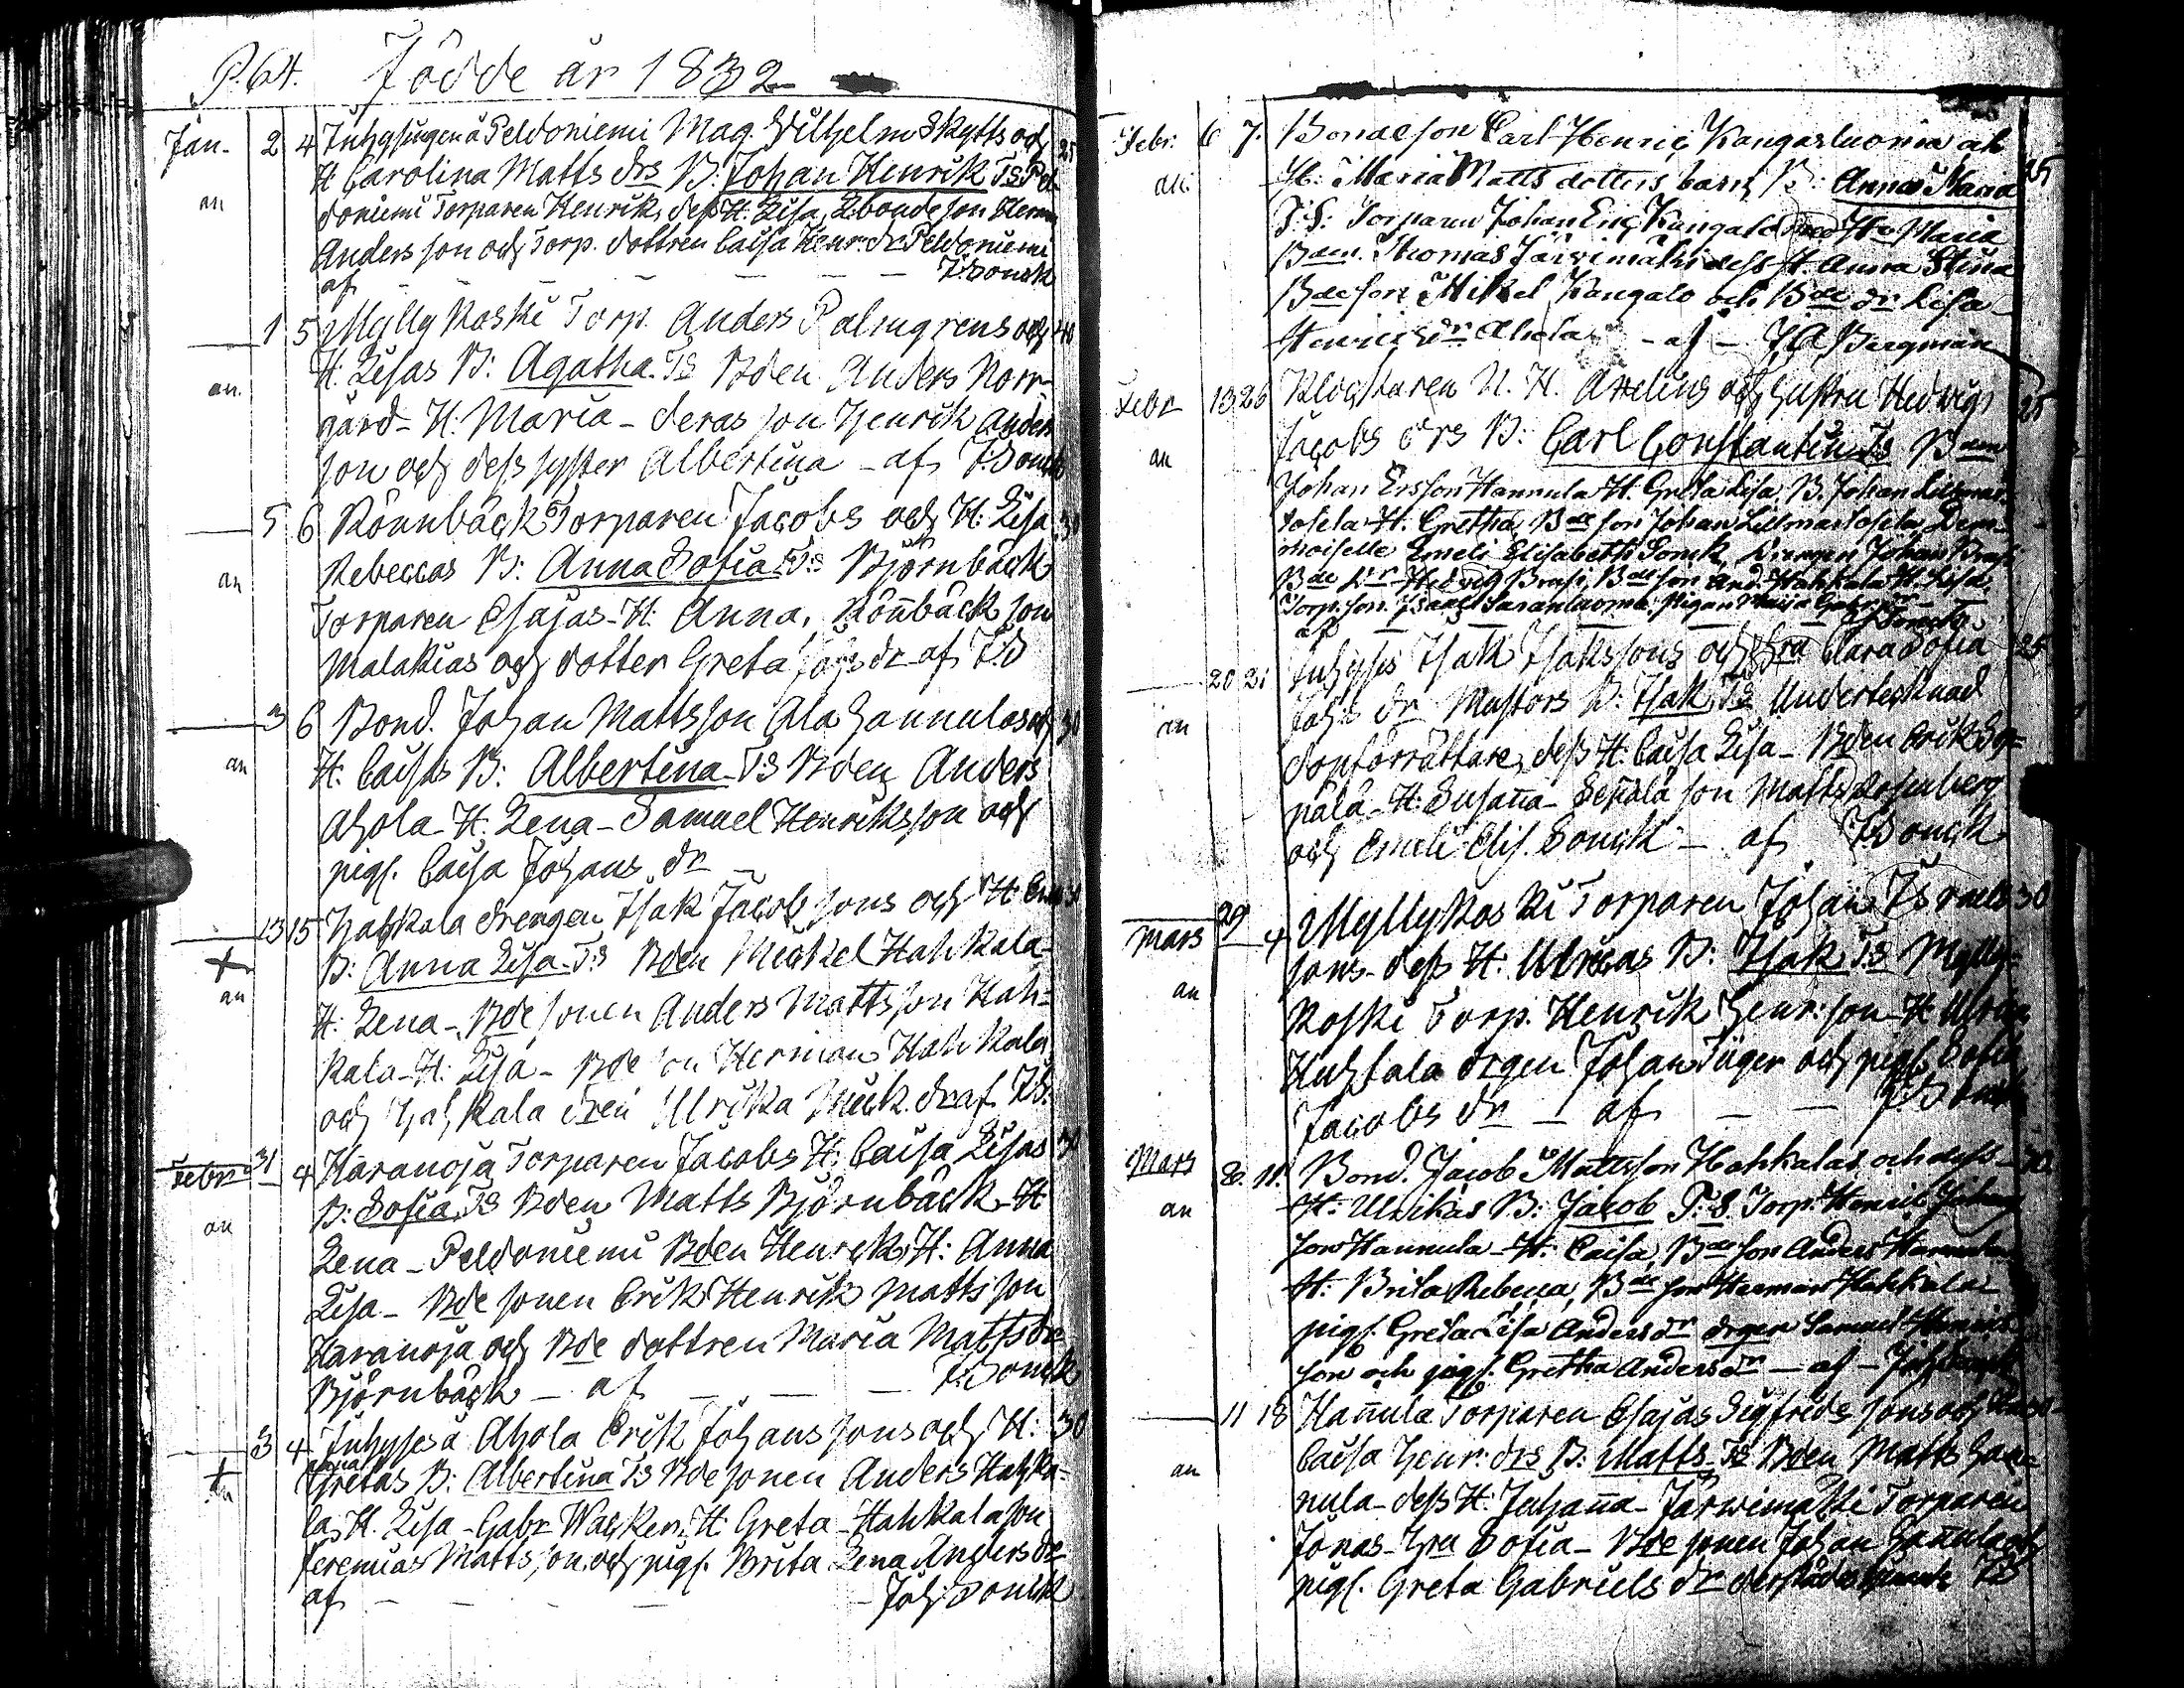 P. 64. Födde år 1832
Jan. 2 4 Inhysingen å Peldoniemi Mag. Wilhelm Skytts och 25
an H Carolina Matts drs B: Johan Henrik Ts Pel-
doniemi Torparen Henrik, dess H. Lisa, Bondeson Herm
Andersson och Torp. dottren Caisa Henr. dr Peldoniemi
af — — — J: Sonck
1 5 Myllykoski Torp. Anders Palmgrens och
an. H: Lisas B: Agatha. Ts Bden Anders Norr-
gård – H. Maria – deras son Henrik Anders
son och dess syster Albertina – af J: Sonck
5 6 Rönnbäck Torparen Jacobs och H: Lisa 31
an Rebeccas B: Anna Sofia Ts Björnbäck
Torparen Esajas – H: Anna, Rönbäck son
Malakias och dotter Greta Joh dr af J:S
3 6 Bond. Johan Mattsson Ala Hannulas och 30
an H: Caisas B: Albertina Ts Bden Anders
Ahola H. Lena – Samuel Henriksson och
pigs. Caisa Johans dr
13 15 Hahkala drengen Isak Jacobssons och H:
+ B: Anna Lisa Ts Bden Mickel Hahkala
an H: Lena – Bde sonen Anders Mattsson Hah-
kala – H: Lisa – Bde son Herman Hahkala
och Hahkala Ulrika Mick. dr af J:S.
Febr 31 4 Haranoja Torparen Jacobs H: Caisa Lisas
an B: Sofia Ts Bden Matts Björnbäck – H
Lena – Peldoniemi Bden Henrik H: Anna
Lisa – Bde sonen Erik Henrik Mattsson
Haranoja och Bde dottren Maria Matts dr
Björnbäck – af — — J: Sonck
3 4 Inhyses å Ahola Erik Johanssons och H: 30
+ an Anna Gretas B: Albertina Ts Bde sonen Anders Hahka-
la, H. Lisa – Gabr Wacker, H: Greta – Hahkala son
Jeremias Mattsson och pigs. Brita Lena Anders dr
af — — — Joh: Sonck
Febr. 6 7. Bondeson Carl Henric Kangasluoma och 25
an H: Maria Matts dotters barn, B: Anna Maria
T.S: Torparen Johan Eric Kangalo med Hu Maria
Bden. Thomas Järvimäki dess H. Anna Stina
Bdeson Mikel Kangalo och Bde dr Lisa
Henrics dr Ahola – af – J A Bergman
Febr 13 26 Klockaren N. H. Axelius och hustru Hedvig 25
an Jacobs drs B: Carl Constantin Ts Bden
Johan Ersson Hannula H. Greta Lisa, B. Johan
H. Gretha, Bde son Johan Dem-
oiselle Emeli Elisabeth Sonck, Drengen Johan
Bde dr Hedvig Bde son And. Hahkala H. Lisa
Torp. son. Isaac Pigan Maija Gabr. dr
af — — — Sonck
20 21 Inhyses Isak Isakssons och hu Clara Sofia 25
an Johs dr Mustors B: Isak, Ts Undertecknad
dopförrättare, dess H: Caisa Lisa – Bden Erik Sep-
pälä – H: Susana – Seppälä son Matts Rosenberg
och Emeli Elis. Sonck – af J: Sonck
Mars 29 4 Myllykoski Torparen Johan Israels 30
an sons – dess H. Ulricas B: Isak Ts Mylly-
koski Torp. Henrik Henr: son – H. Ulrica
Huhtala drgen Johan och pigs. Sofia
Jacobs dr – af — — J: Sonck
Mars 8. 11. Bond. Jacob Mattsson Hahkalas och dess
an H: Ulrikas B: Jacob T:S. Torp. Henric Johans
son Hannula – H: Caisa, Bde son Anders Hannula
H: Brita Rebecca, Bde son Herman Hahkala
pigs. Greta Lisa Anders dr drgen Samuel Henrics
son och pigs. Gretha Anders dr – af – Joh Sonck
11 18 Hañula Torparen Esajas Sigfrids sons och
an Caisa Henr: drs B: Matts Ts Bden Matts Han-
nula – dess H: Juhaña – Järwimäki Torparen
Jonas – Hu Sofia – Bde sonen Johan Hañula och
pigs. Greta Gabriels dr J:S